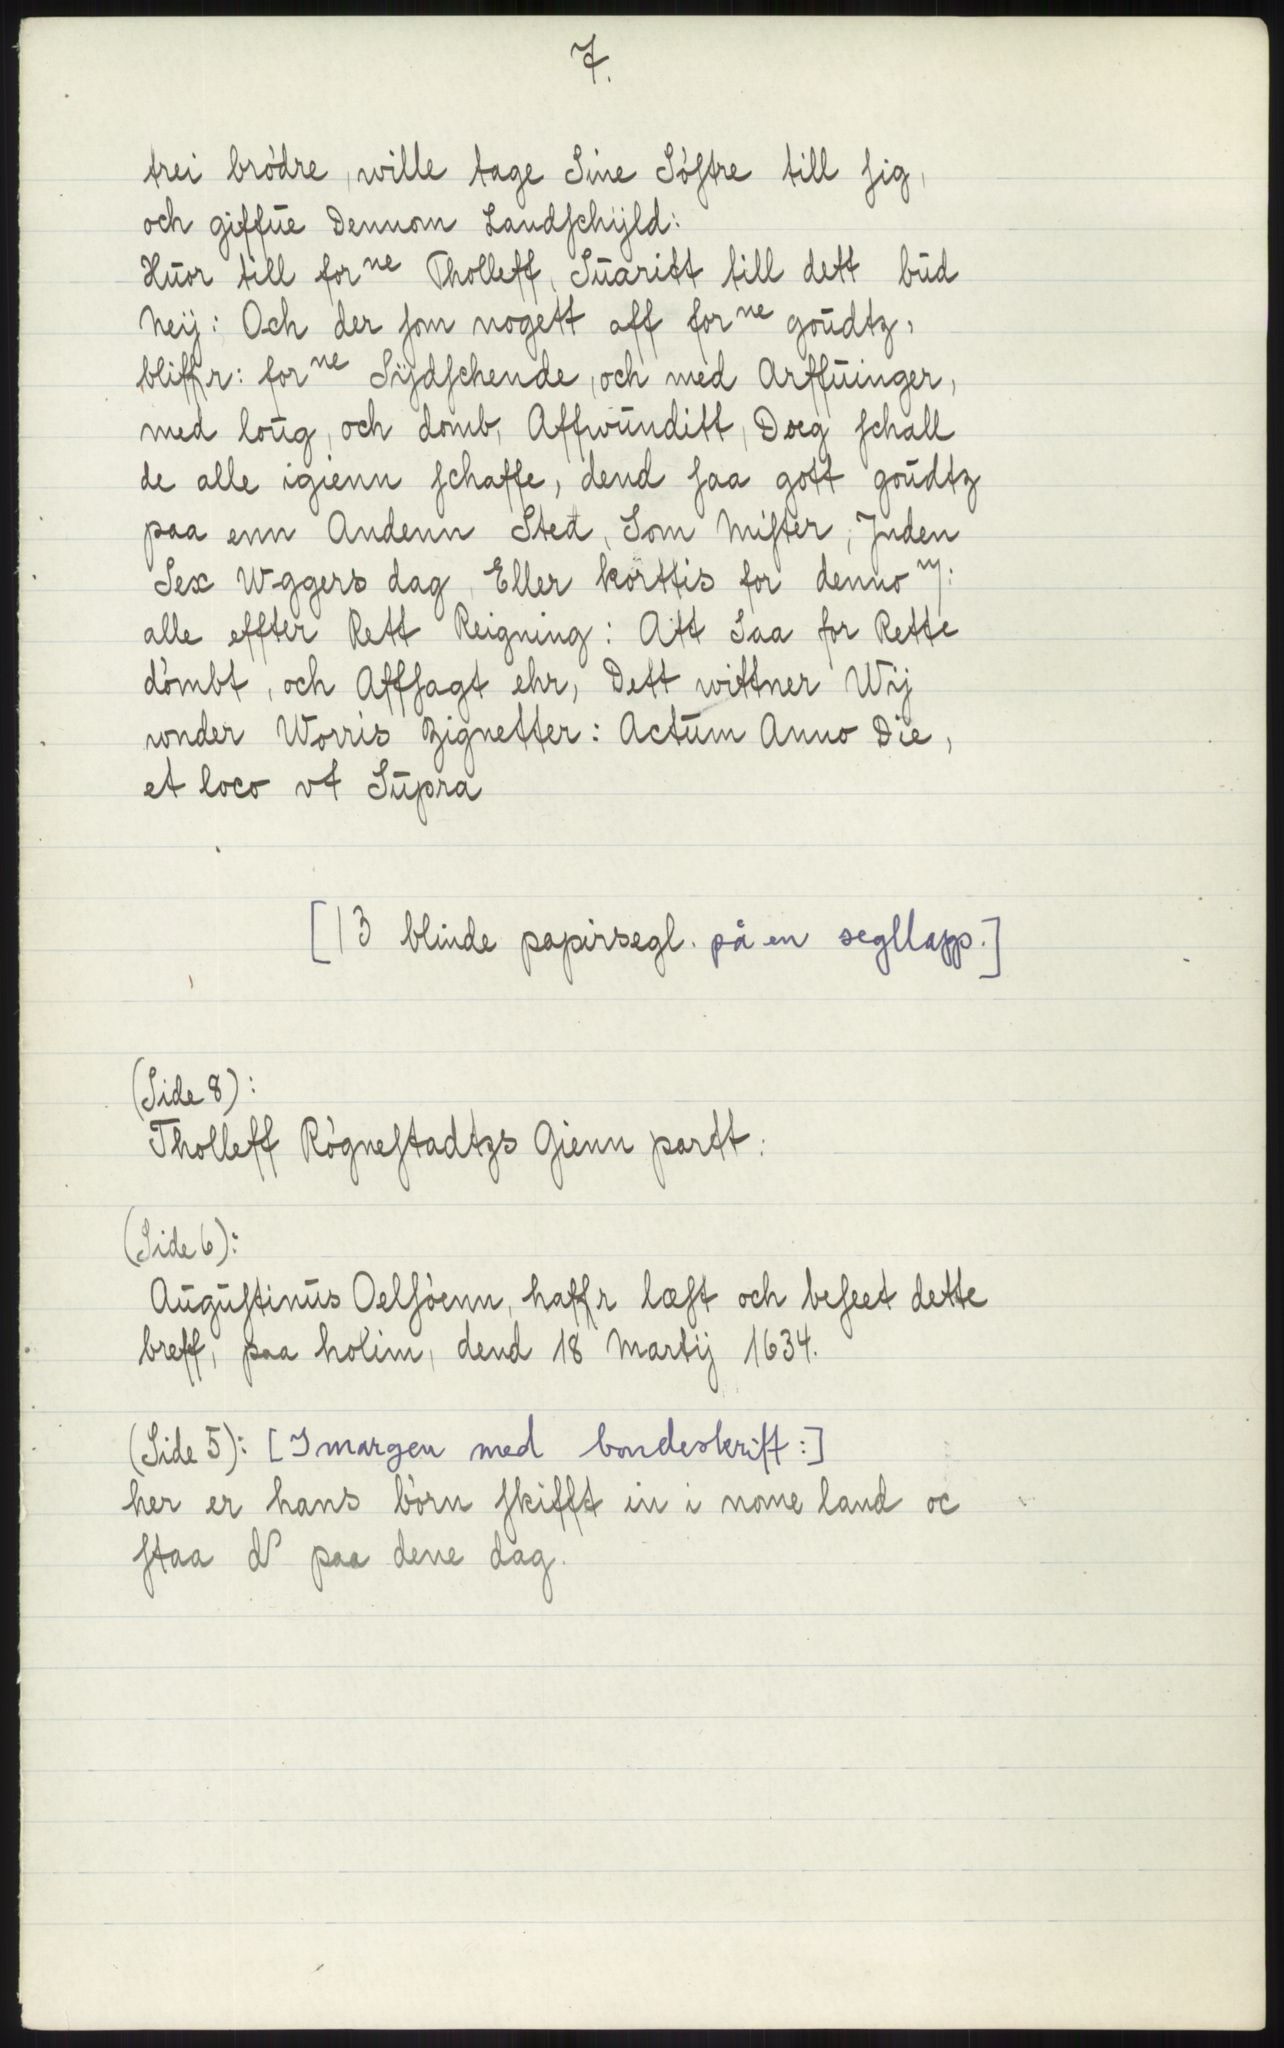 7.
trei brödre, wille tage Sine Söſtre till ſig,
och giffūe Dennom Landſchÿld:
Hūor till forⁿᵉ Tholleff, Sūaritt till dett būd
Neij: Och der ſom nogett aff forⁿᵉ goūdtz,
bliffr: forⁿᵉ Sÿdſchende, och med Arffūinger,
med loūg, och domb, Affwūnditt, Doeg ſchall
de alle igienn ſchaffe, dend ſaa gott goūdtz
paa enn Andenn Sted, Som Miſter, Jnden
Sex Wggers dag, Eller korttis for denno ᵐ:
alle effter Rett Reigning: Att Saa for Rette
dömbt, och Affſagt ehr, Dett wittner Wij
vonder Worris Zignetter: Actūm Anno Die,
et loco vt Sūpra
[13 blinde papirsegl. på en segllapp.]
(Side 8):
Tholleff Rögneſtadtzs Gienn partt:
(Side 6):
Aūgūſtinūs Oelſöenn, haffr læſt och beſeet dette
breff, paa holūm, dend 18 Martij 1634.
(Side 5): [I margen med bondeskrift:]
her er hans börn ſkifft in i nome land oc
ſtaa d paa dene dag.